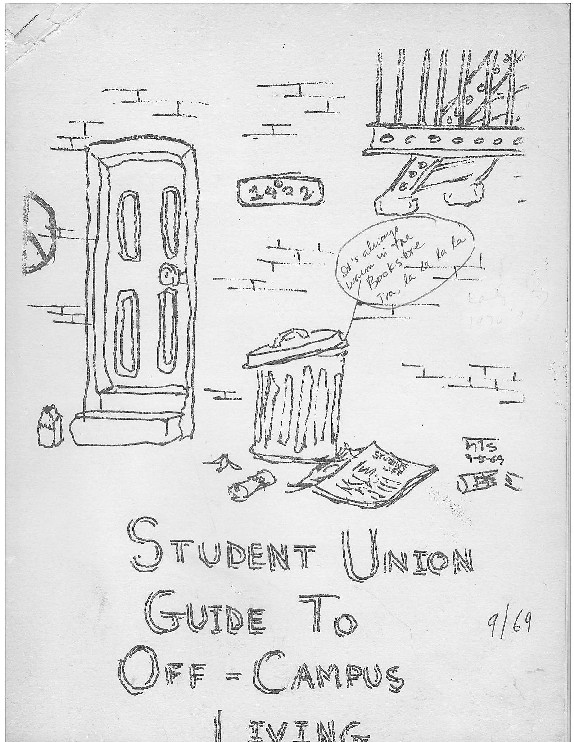 1422
It's always
warm in the
Bookstore
Tra, la la la la
STUDENT
MTS
9-5-69
STUDENT UNION
GUIDE TO
9/69
OFF=CAMPUS
LIVING